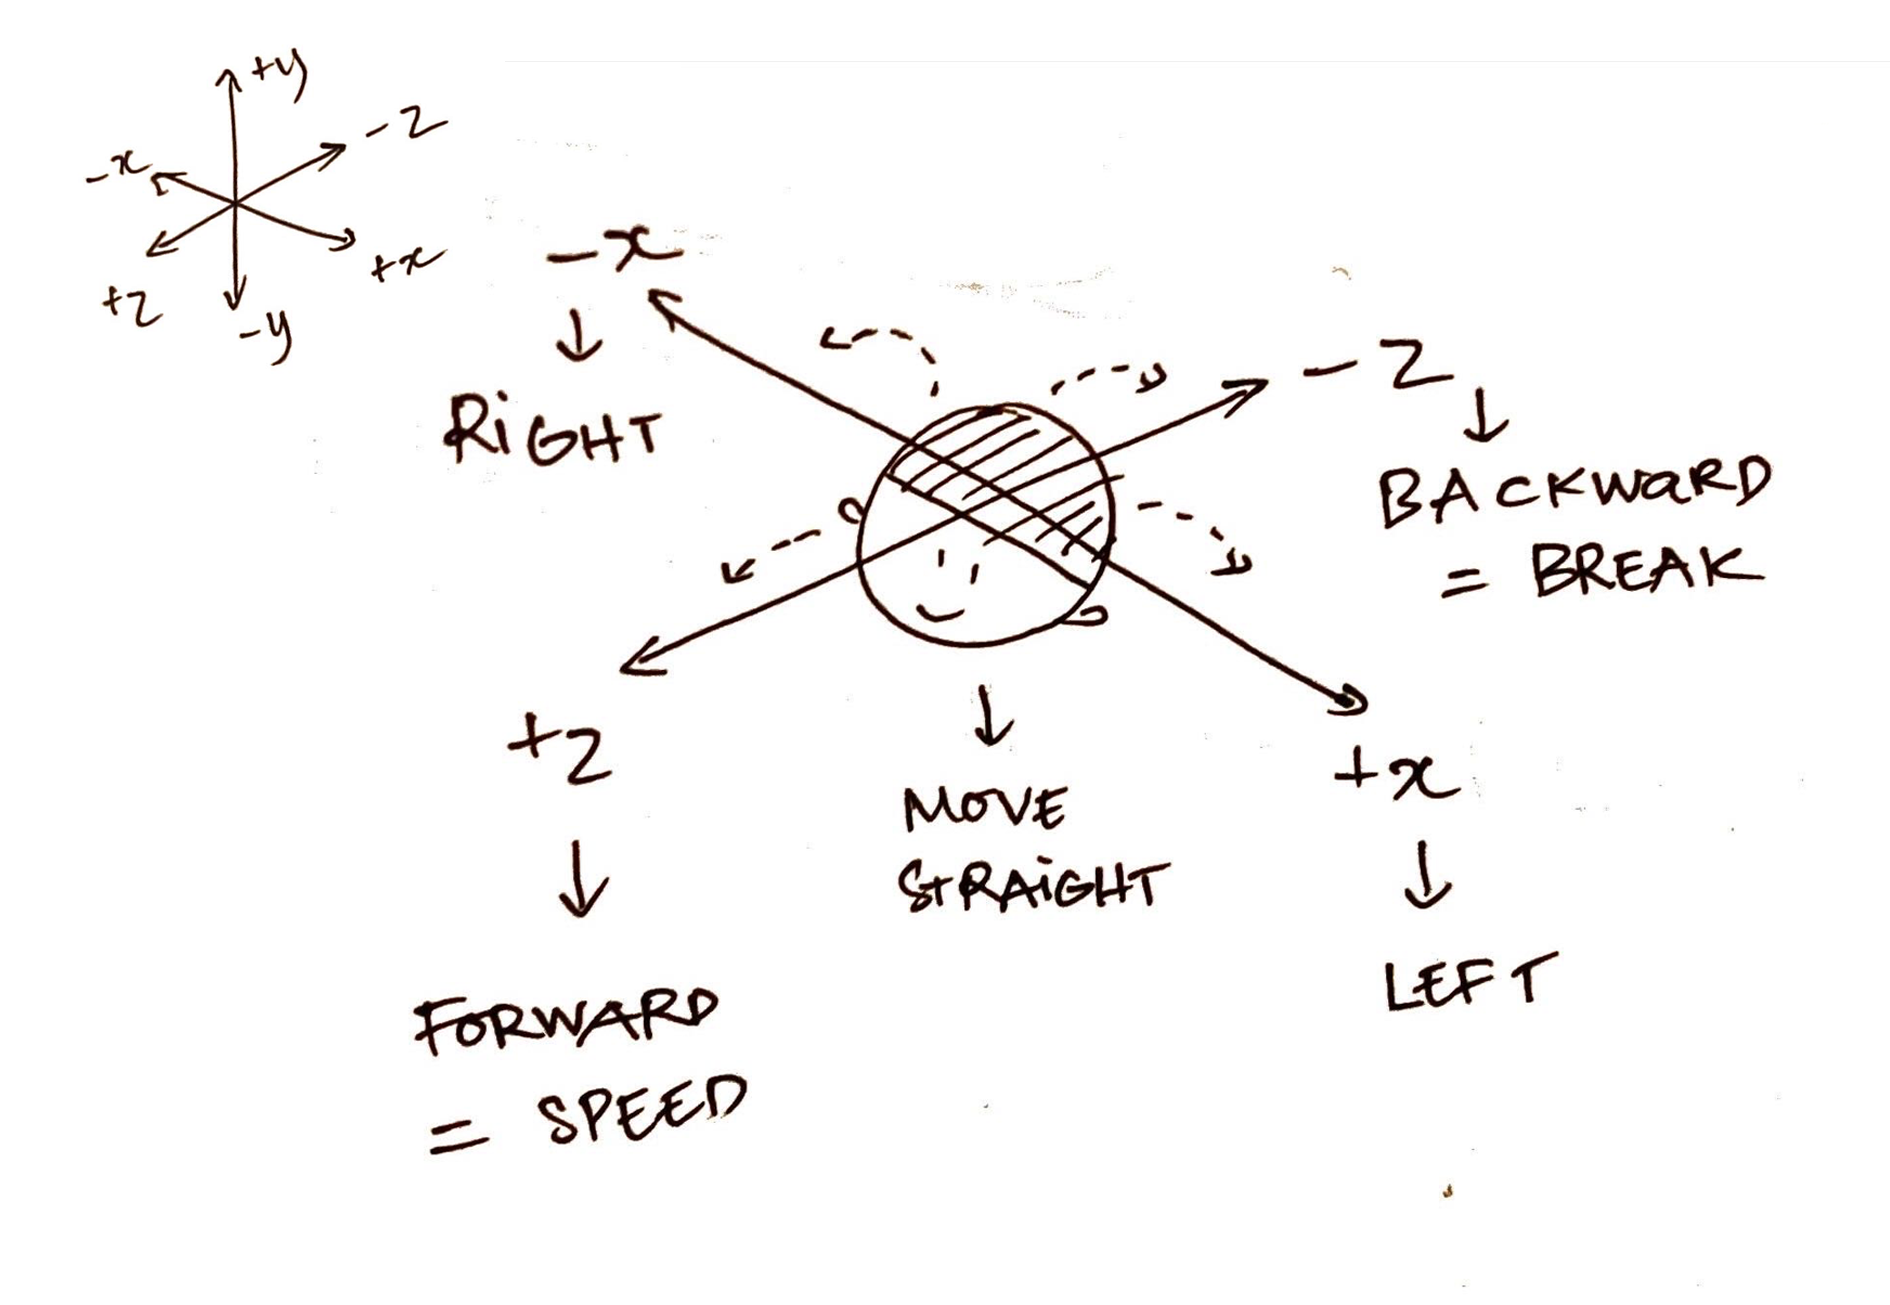 +y
-z
-x
+x
+z
-y
-x
↓
RiGHT
-z
↓
BACKWaRD
= BREAK
+z
↓
FORWARD
= SPEED
↓
MOVE
STRAiGHT
+x
↓
LEFT